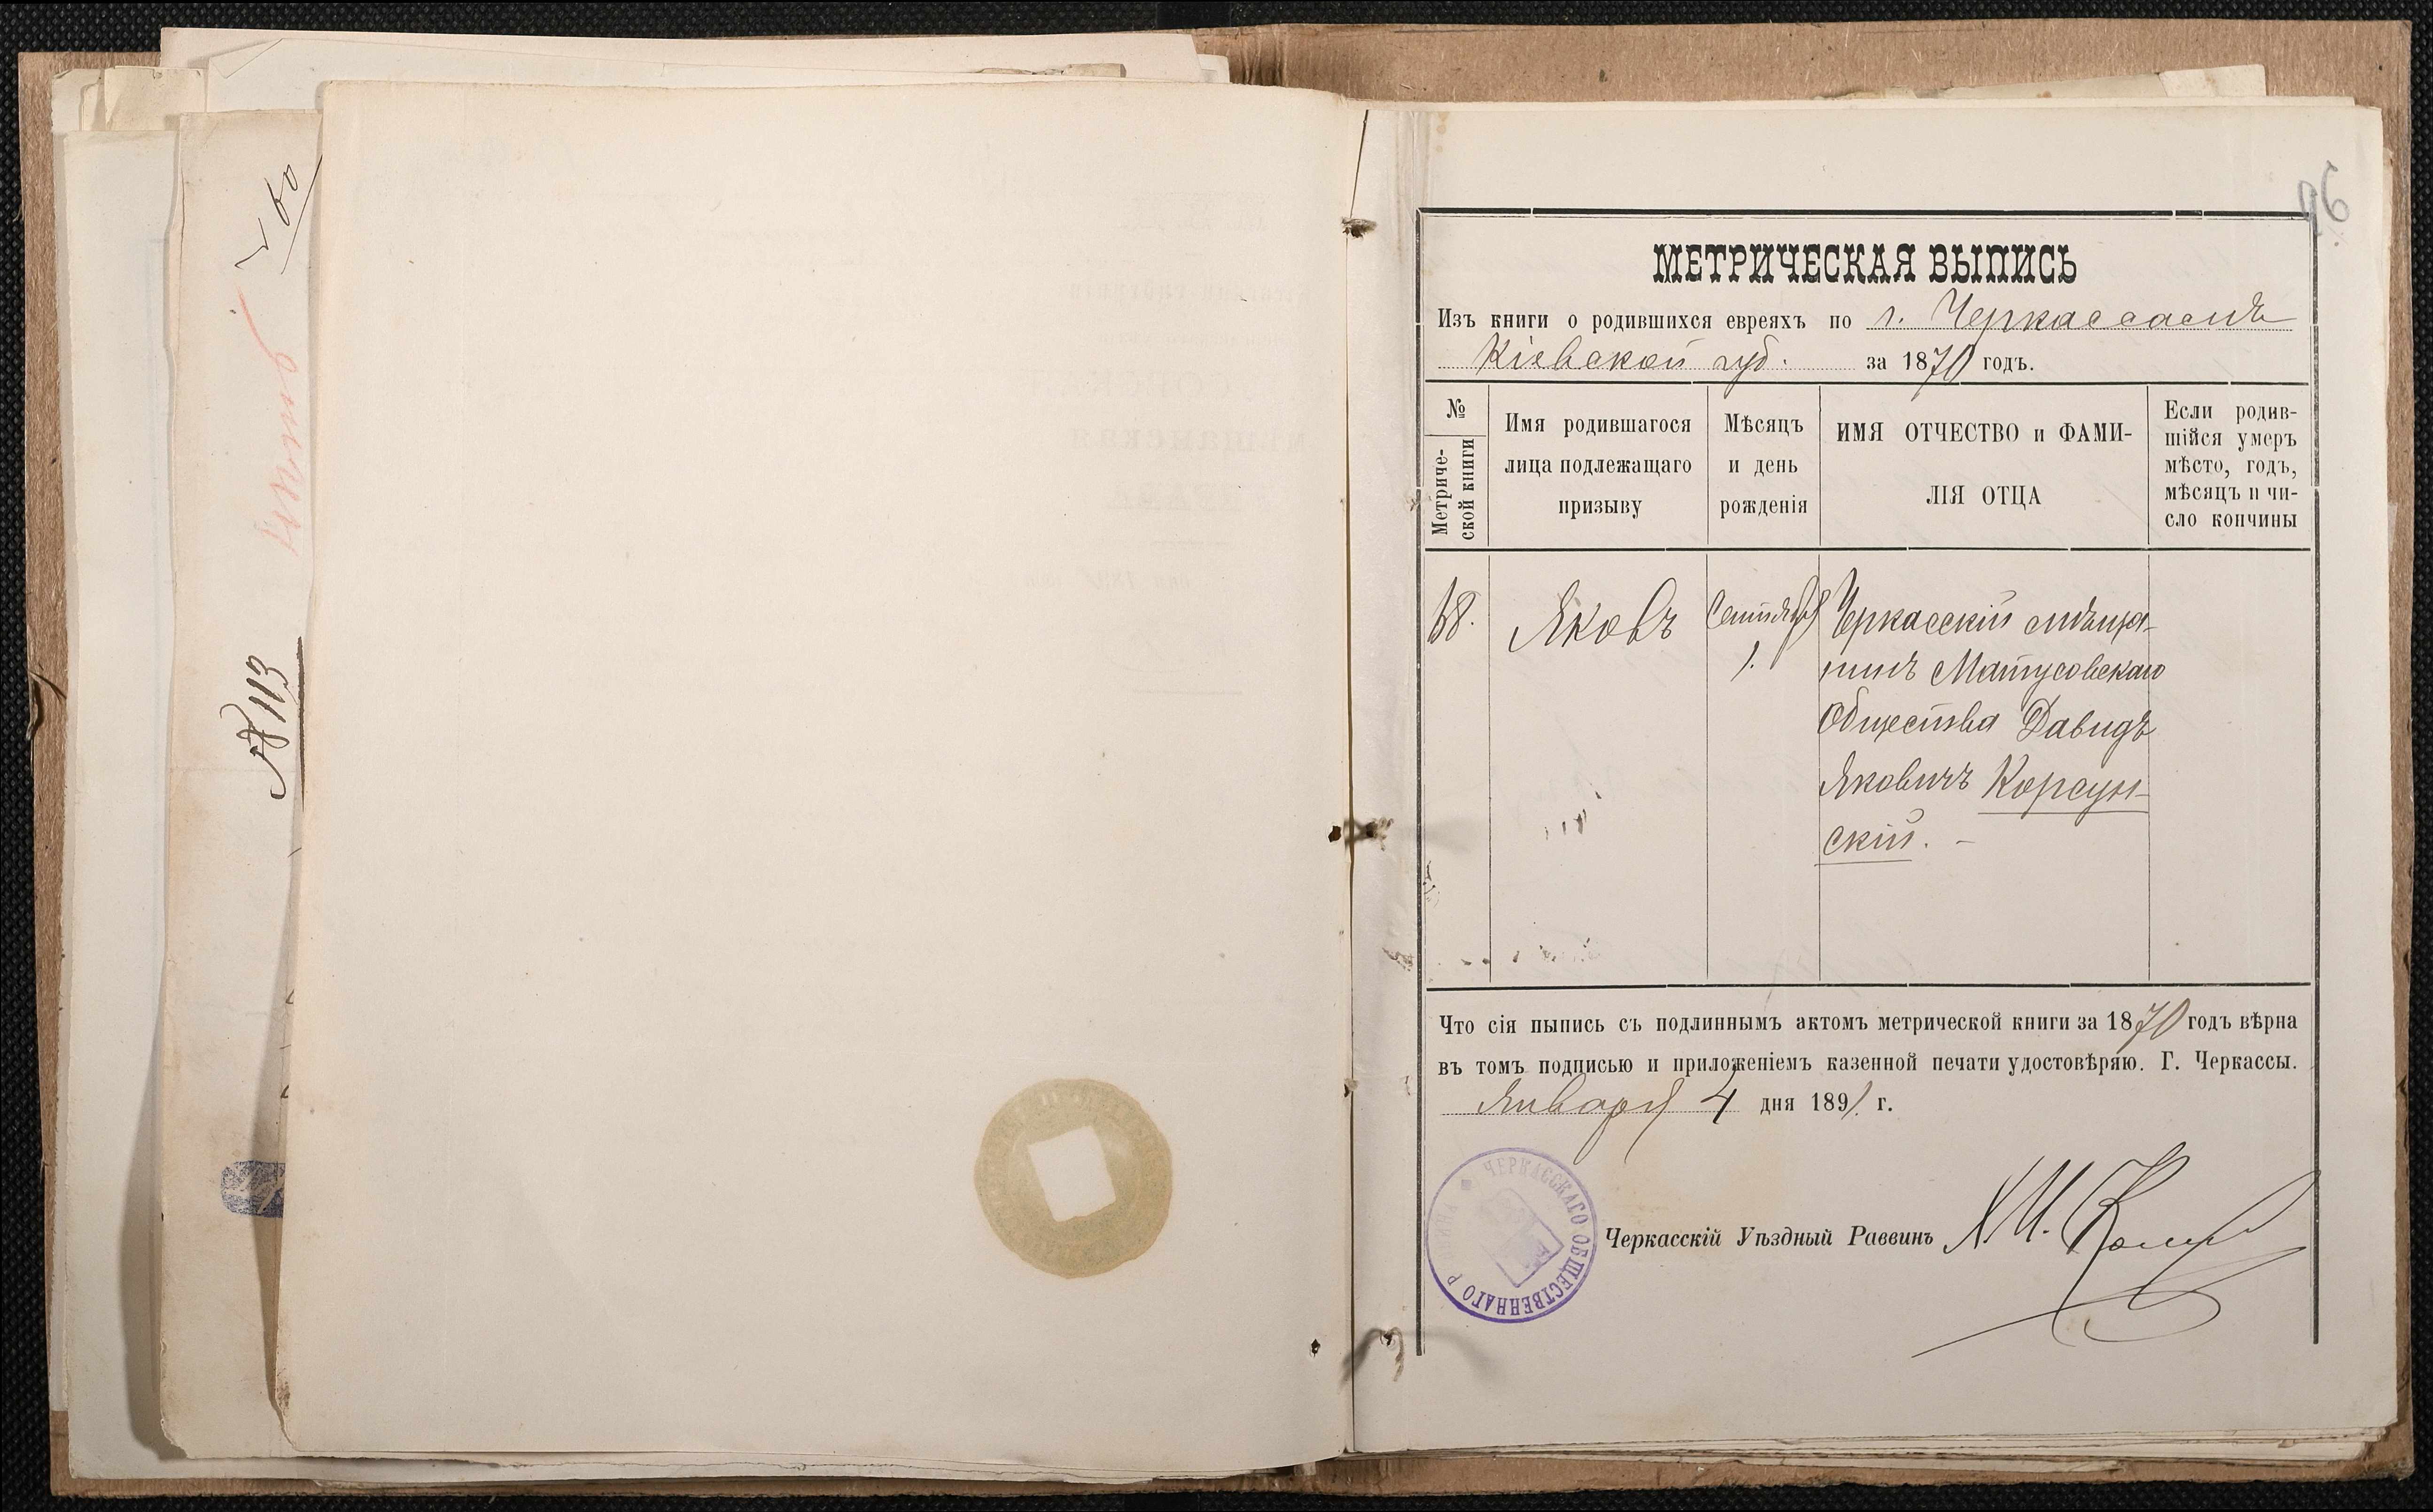 № 113
96
МЕТРИЧЕСКАЯ ВЫПИСЬ
Изъ книги о родившихся евреяхъ по г. Черкассамъ
Кіевской губ. за 1870 годъ.
№ Метрической книги
Имя родившагося лица подлежащаго призыву
Мѣсяцъ и день рожденія
ИМЯ ОТЧЕСТВО и ФАМИ-
ЛІЯ ОТЦА
Если родив-
шійся умеръ
мѣсто, годъ,
мѣсяцъ и чи-
сло кончины
Яковъ
Сентября
1.
Черкасскій мѣща-
нинъ Матусовскаго
Общества Давидъ
Яковичъ Корсун-
скій. —
Что сія выпись съ подлиннымъ актомъ метрической книги за 1870 годъ вѣрна
въ томъ подписью и приложеніемъ казенной печати удостовѣряю. Г. Черкассы.
Января 4 дня 1891 г.
ЧЕРКАССКАГО ОБЩЕСТВЕННАГО Р
Черкасскій Уѣздный Раввинъ